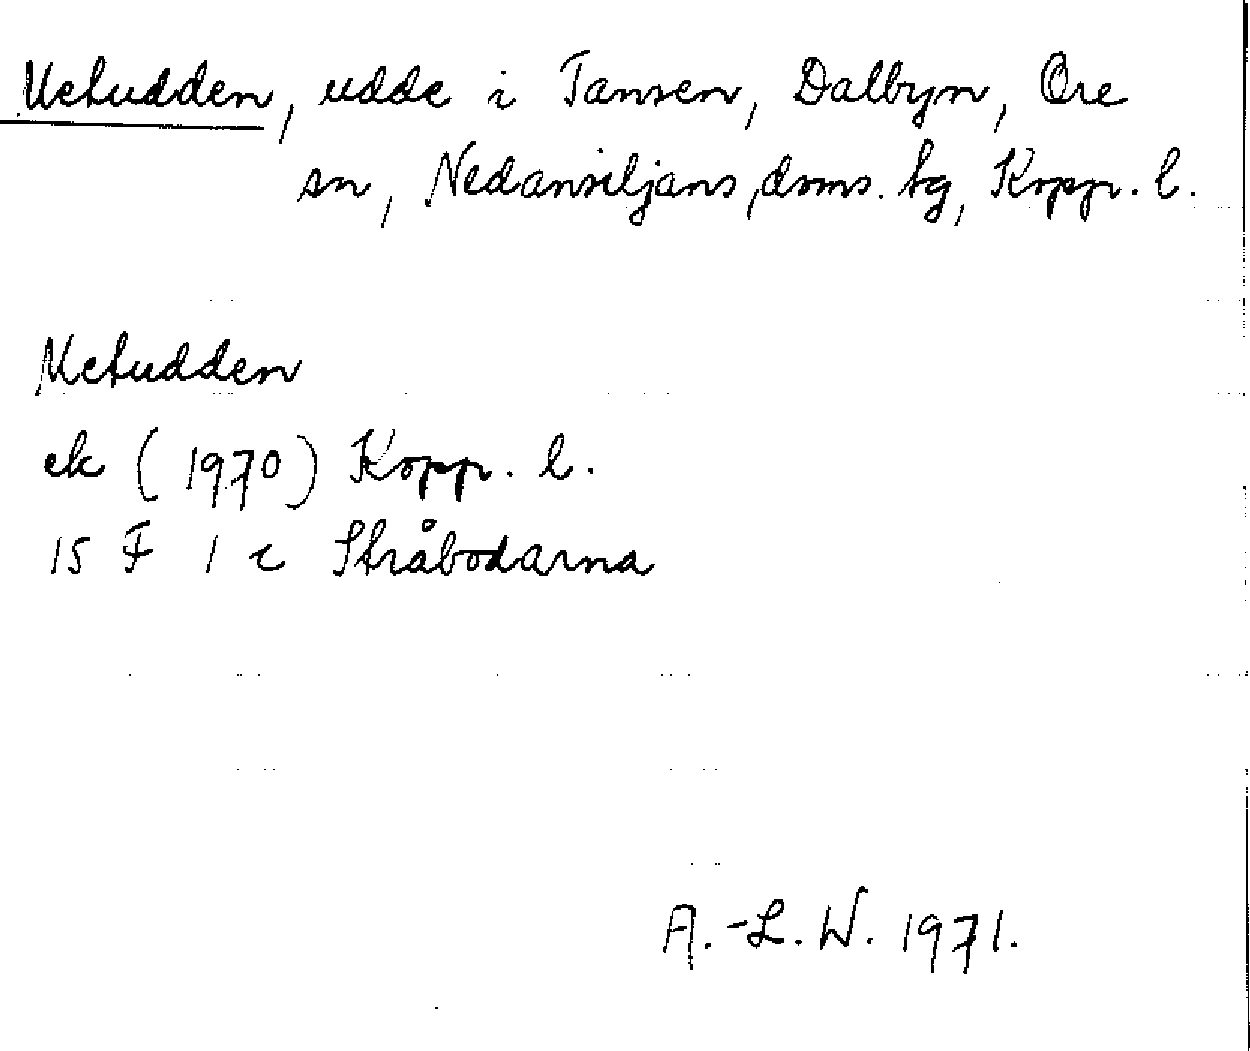 Metudden, udde i Tansen, Dalbyn, Ore
sn, Nedansiljans doms. tg, Kopp. l.
Metudden
ek (1970) Kopp. l.
15 F 1 c Skråbodarna
A.-L. W. 1971.